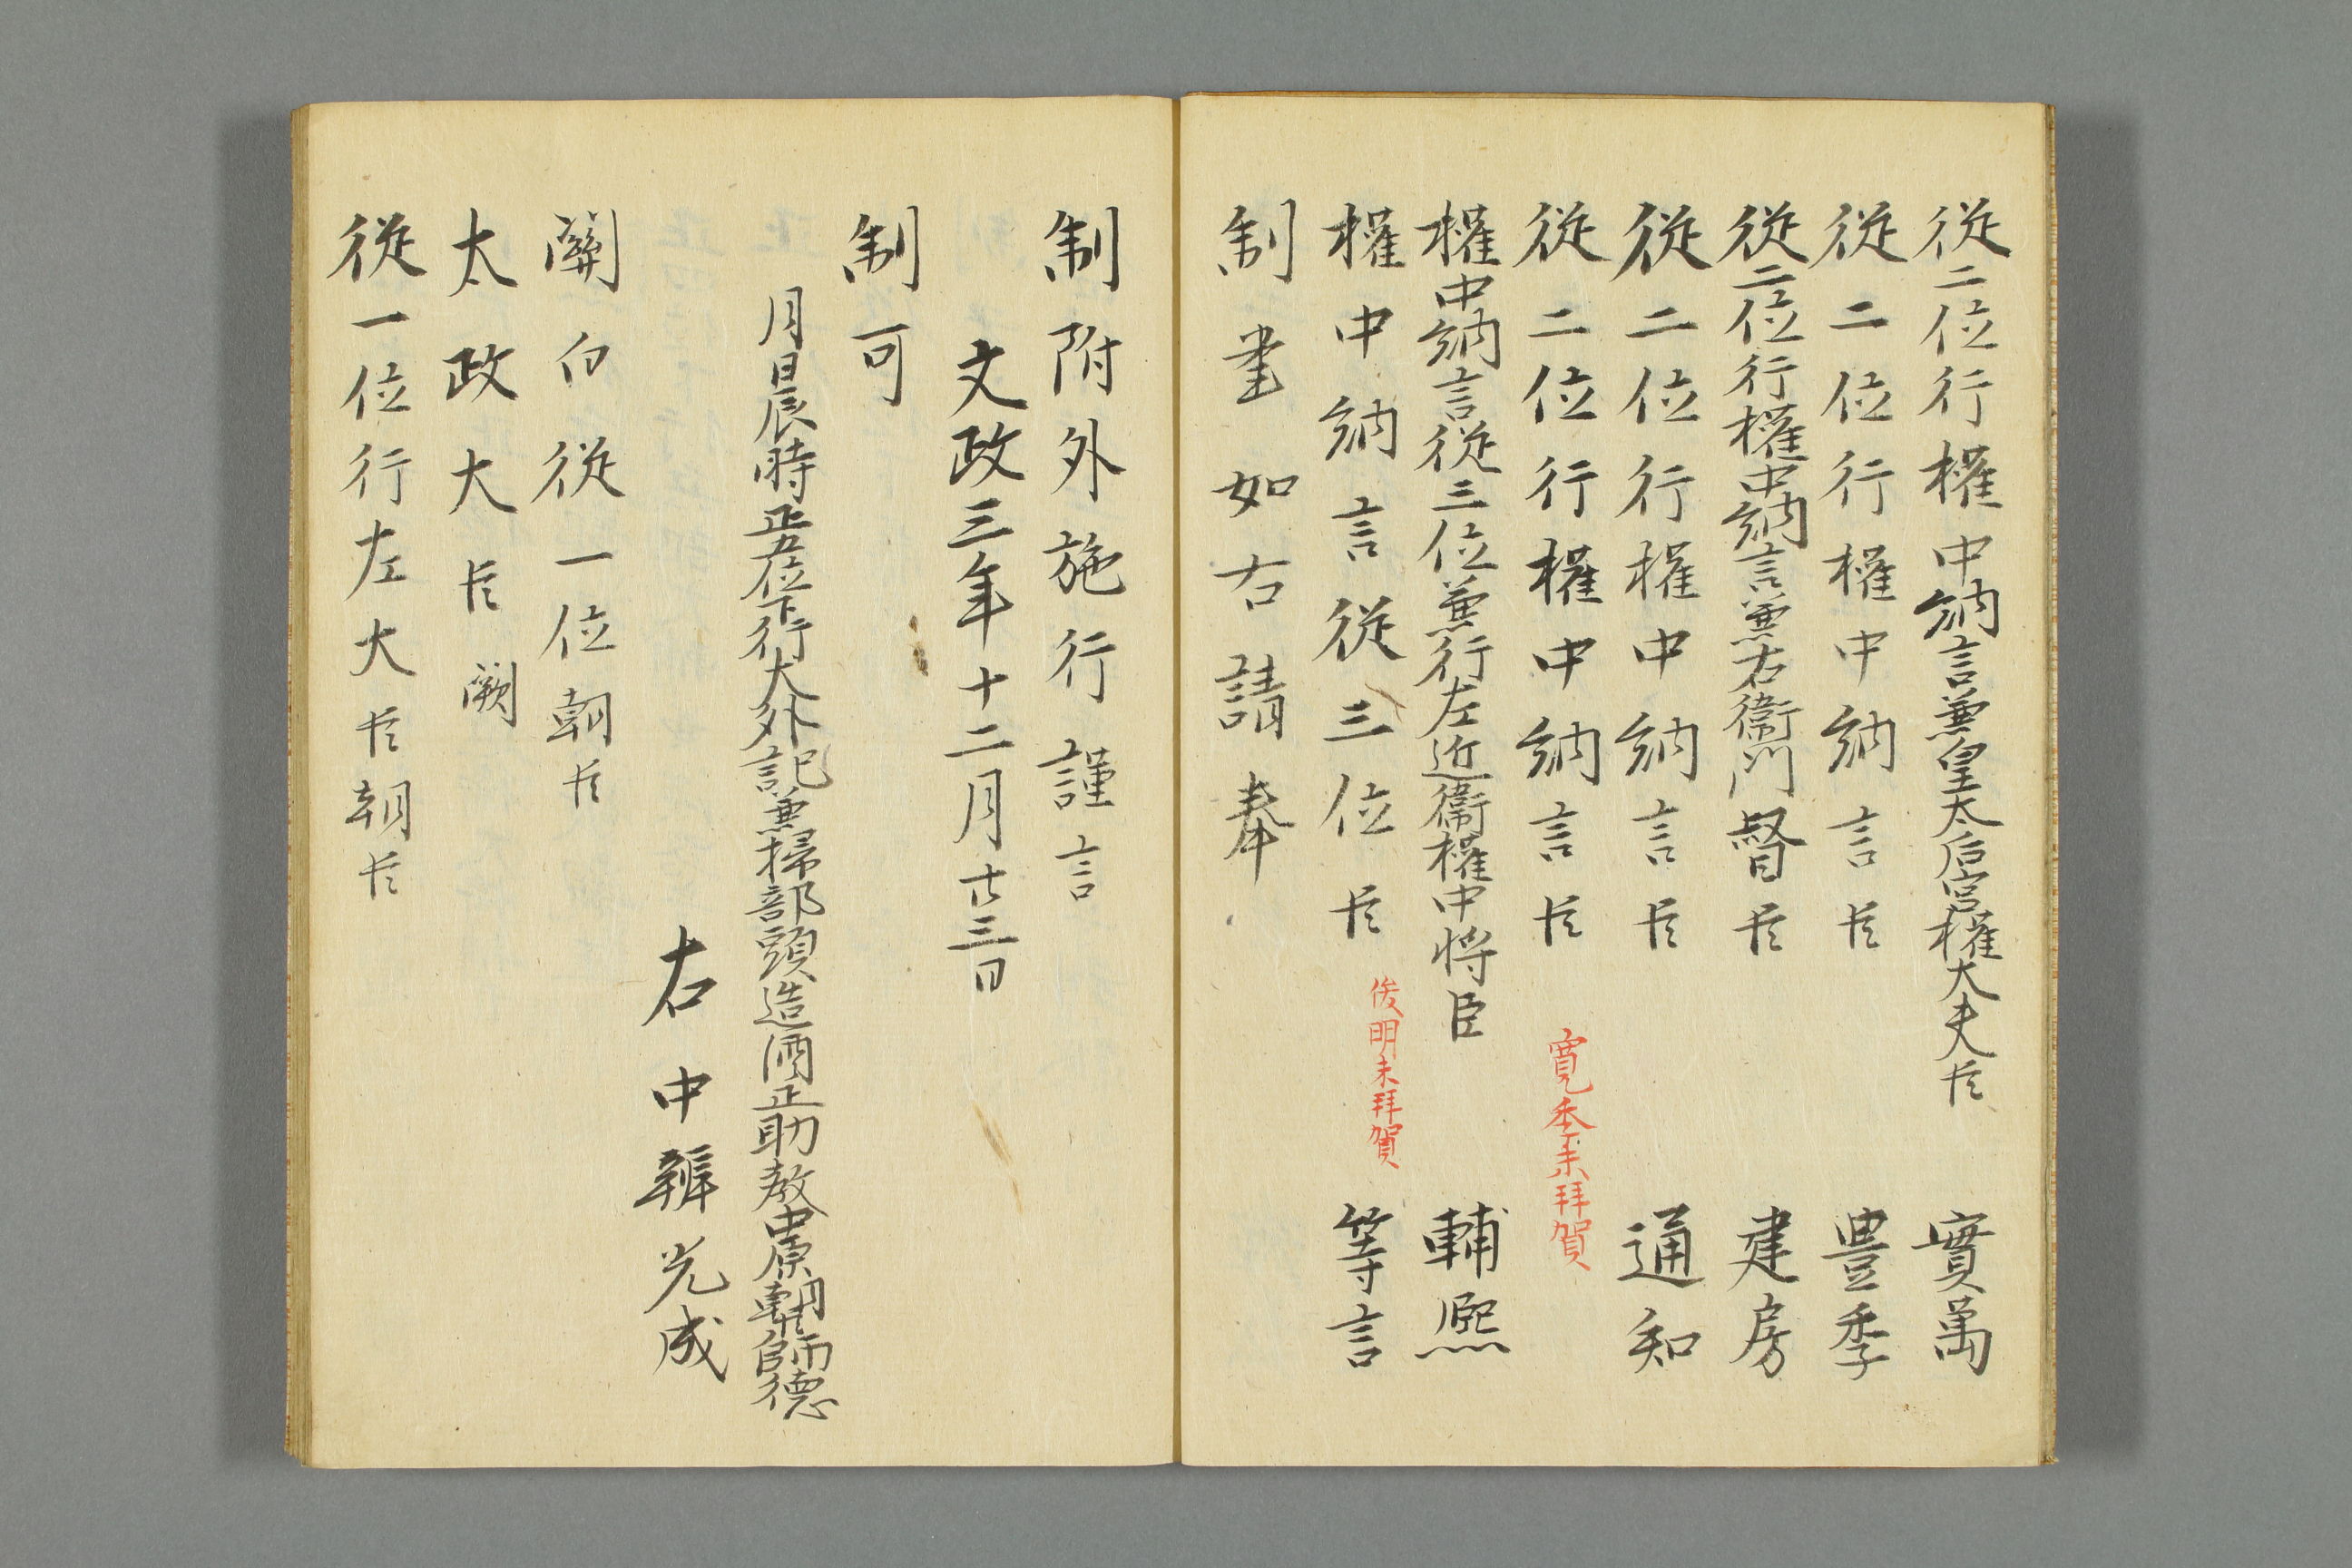 從二位行權中納言兼皇太后宮權大夫臣 實萬
從二位行權中納言臣 豊季
從二位行權中納言兼右衛門督臣 建房
從二位行權中納言臣 通知
從二位行權中納言臣 未拜賀
權中納言從三位兼行左近衛權中將臣 輔熙
權中納言從三位臣 俊明未拜賀 等言
制書如右請奉
制附外施行謹言
文政三年十二月廿三日
制可
月日辰時正五位下行大外記兼掃部頭造酒正助教中原朝臣師德
右中辨光成
關白從一位朝臣
太政大臣 闕
從一位行左大臣朝臣